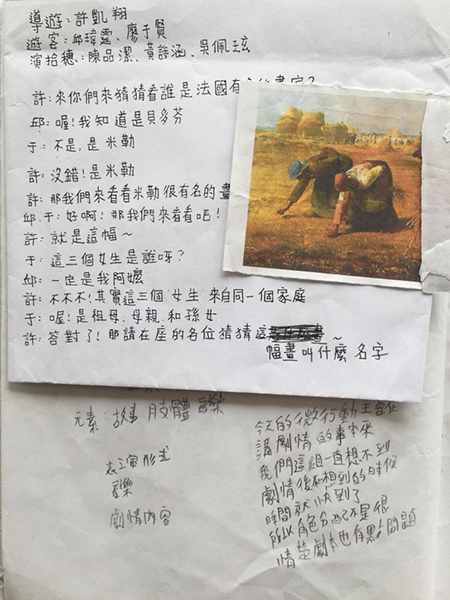 導遊：許凱翔
遊客：邱瑋霆、廖于賢
演拾穗：陳品潔、黃詩涵、吳佩玹
許：來你們來猜猜看誰是法國有名的畫家？
邱：喔！我知道是貝多芬
于：不是，是米勒
許：沒錯！是米勒
許：那我們來看看米勒很有名的畫
邱.于：好啊！那我們來看看吧！
許：就是這幅～
于：這三個女生是誰呀？
邱：一定是我阿嬤
許：不不不！其實這三個女生來自同一個家庭
于：喔！是祖母、母親和孫女
許：答對了！那請在座的各位猜猜這
幅畫叫什麼名字～
元素：故事 肢體 音樂
表演形式
音樂
劇情內容
今天的微行動主要在
講劇情的事本來
我們這組一直想不到
劇情後來想到的時候
時間就快到了
所以角色分配不是很
清楚劇本也有點問題